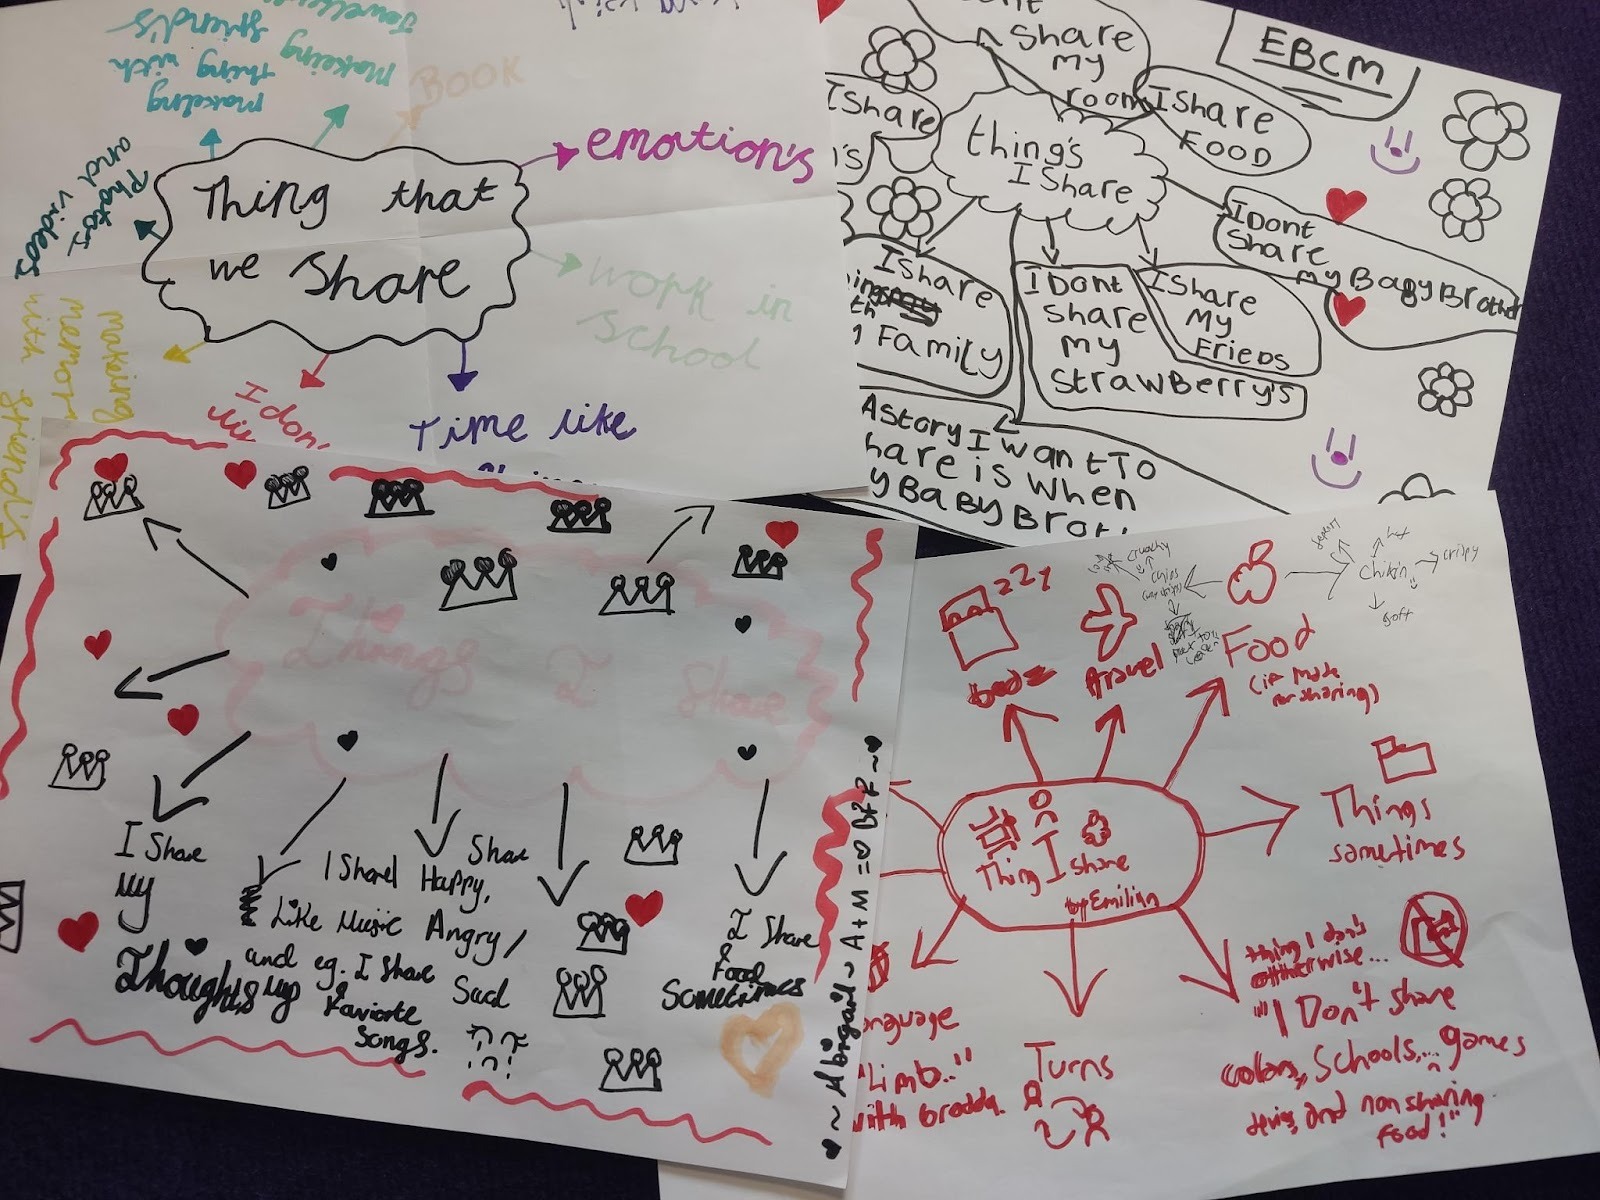 Makeing
Jewellery
makeing
thing with
friend's
BOOK
emotion's
Photos
and videos
Thing that
we Share
work in
School
making
memor
with friend's
I don
Time like
EBCM
Share
my
room
I Share
FOOD
I Share
thing's
I Share
I Dont
Share
my Baby Brother
I Share
Family
I Dont
share
my
StrawBerry's
I Share
My
Frieds
A Story I want To
hare is when
y BaBy Brot
Things I Share
I Share
my
Thoughts
I Share
Like Music
and eg. I Share
my Faviorte
Songs.
Share
Happy,
Angry,
Sad
I Share
Food
Sometimes
~ Abigail ~ A+M = BFF ~
zzy
beds
travel
Food
(if made
for sharing)
crunchy
chips
chikin
hot
crispy
soft
Thing I share
by Emilian
Things
sometimes
anguage
"Limb.."
with brodda.
Turns
thing I don't
otherwise...
"I Don't share
colors, Schools,... games
and non sharing
food!"